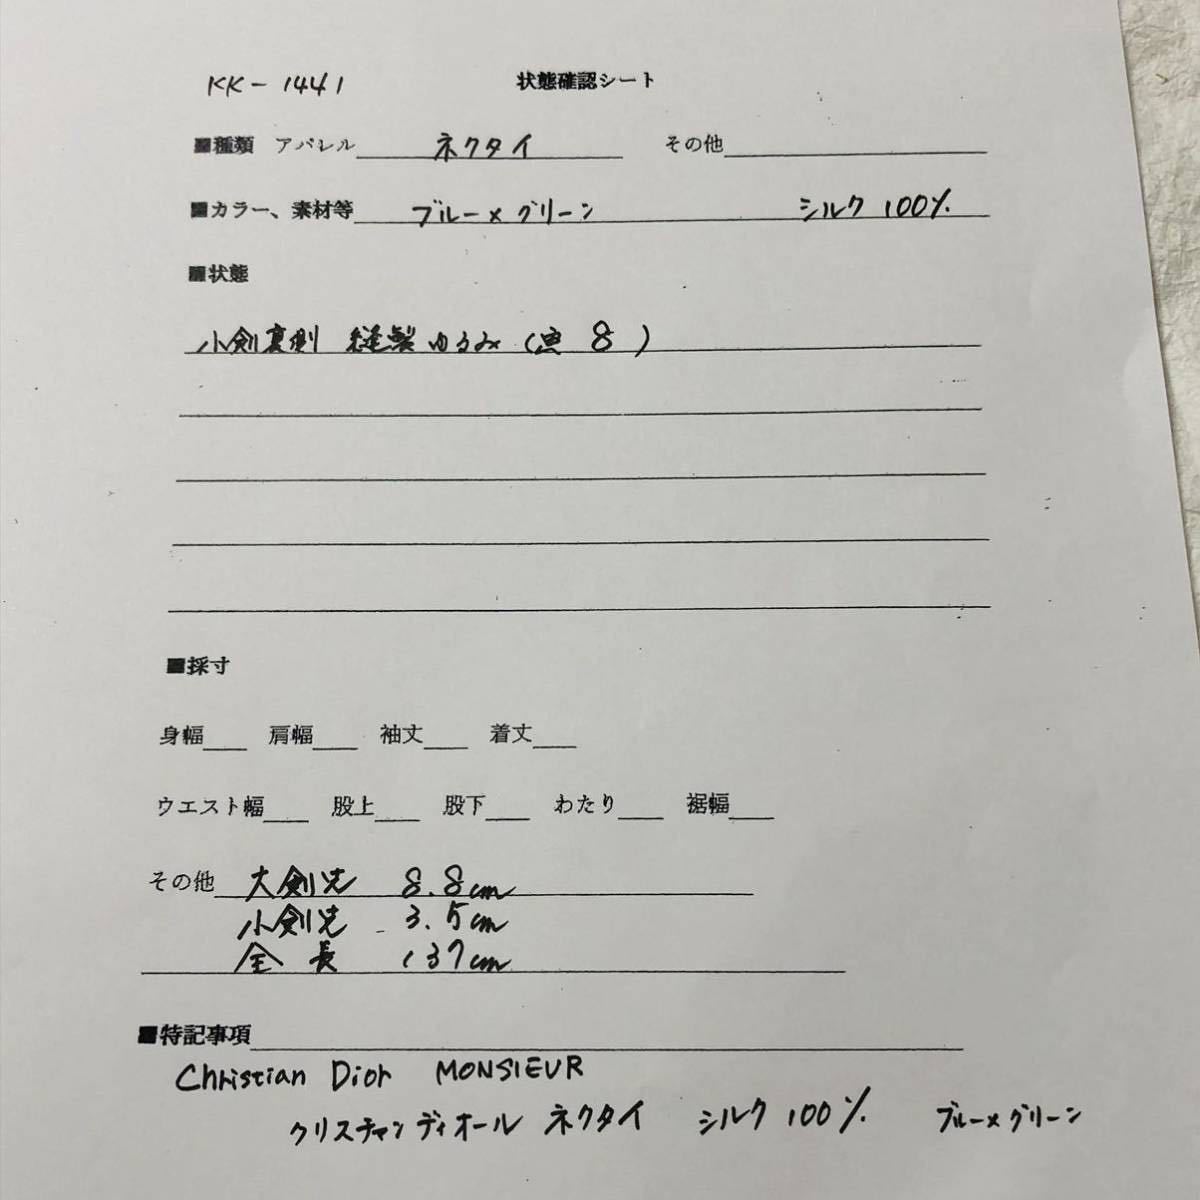 KK-1441 状態確認シート
■種類 アパレル ネクタイ その他
■カラー、素材等 ブルー×グリーン シルク100%
■状態
小剣裏側 縫製ゆるみ(画8)
■採寸
身幅 肩幅 袖丈 着丈
ウエスト幅 股上 股下 わたり 裾幅
その他 大剣先 8.8cm
小剣先 3.5cm
全長 137cm
■特記事項
Christian Dior MONSIEUR
クリスチャンディオール ネクタイ シルク100% ブルー×グリーン